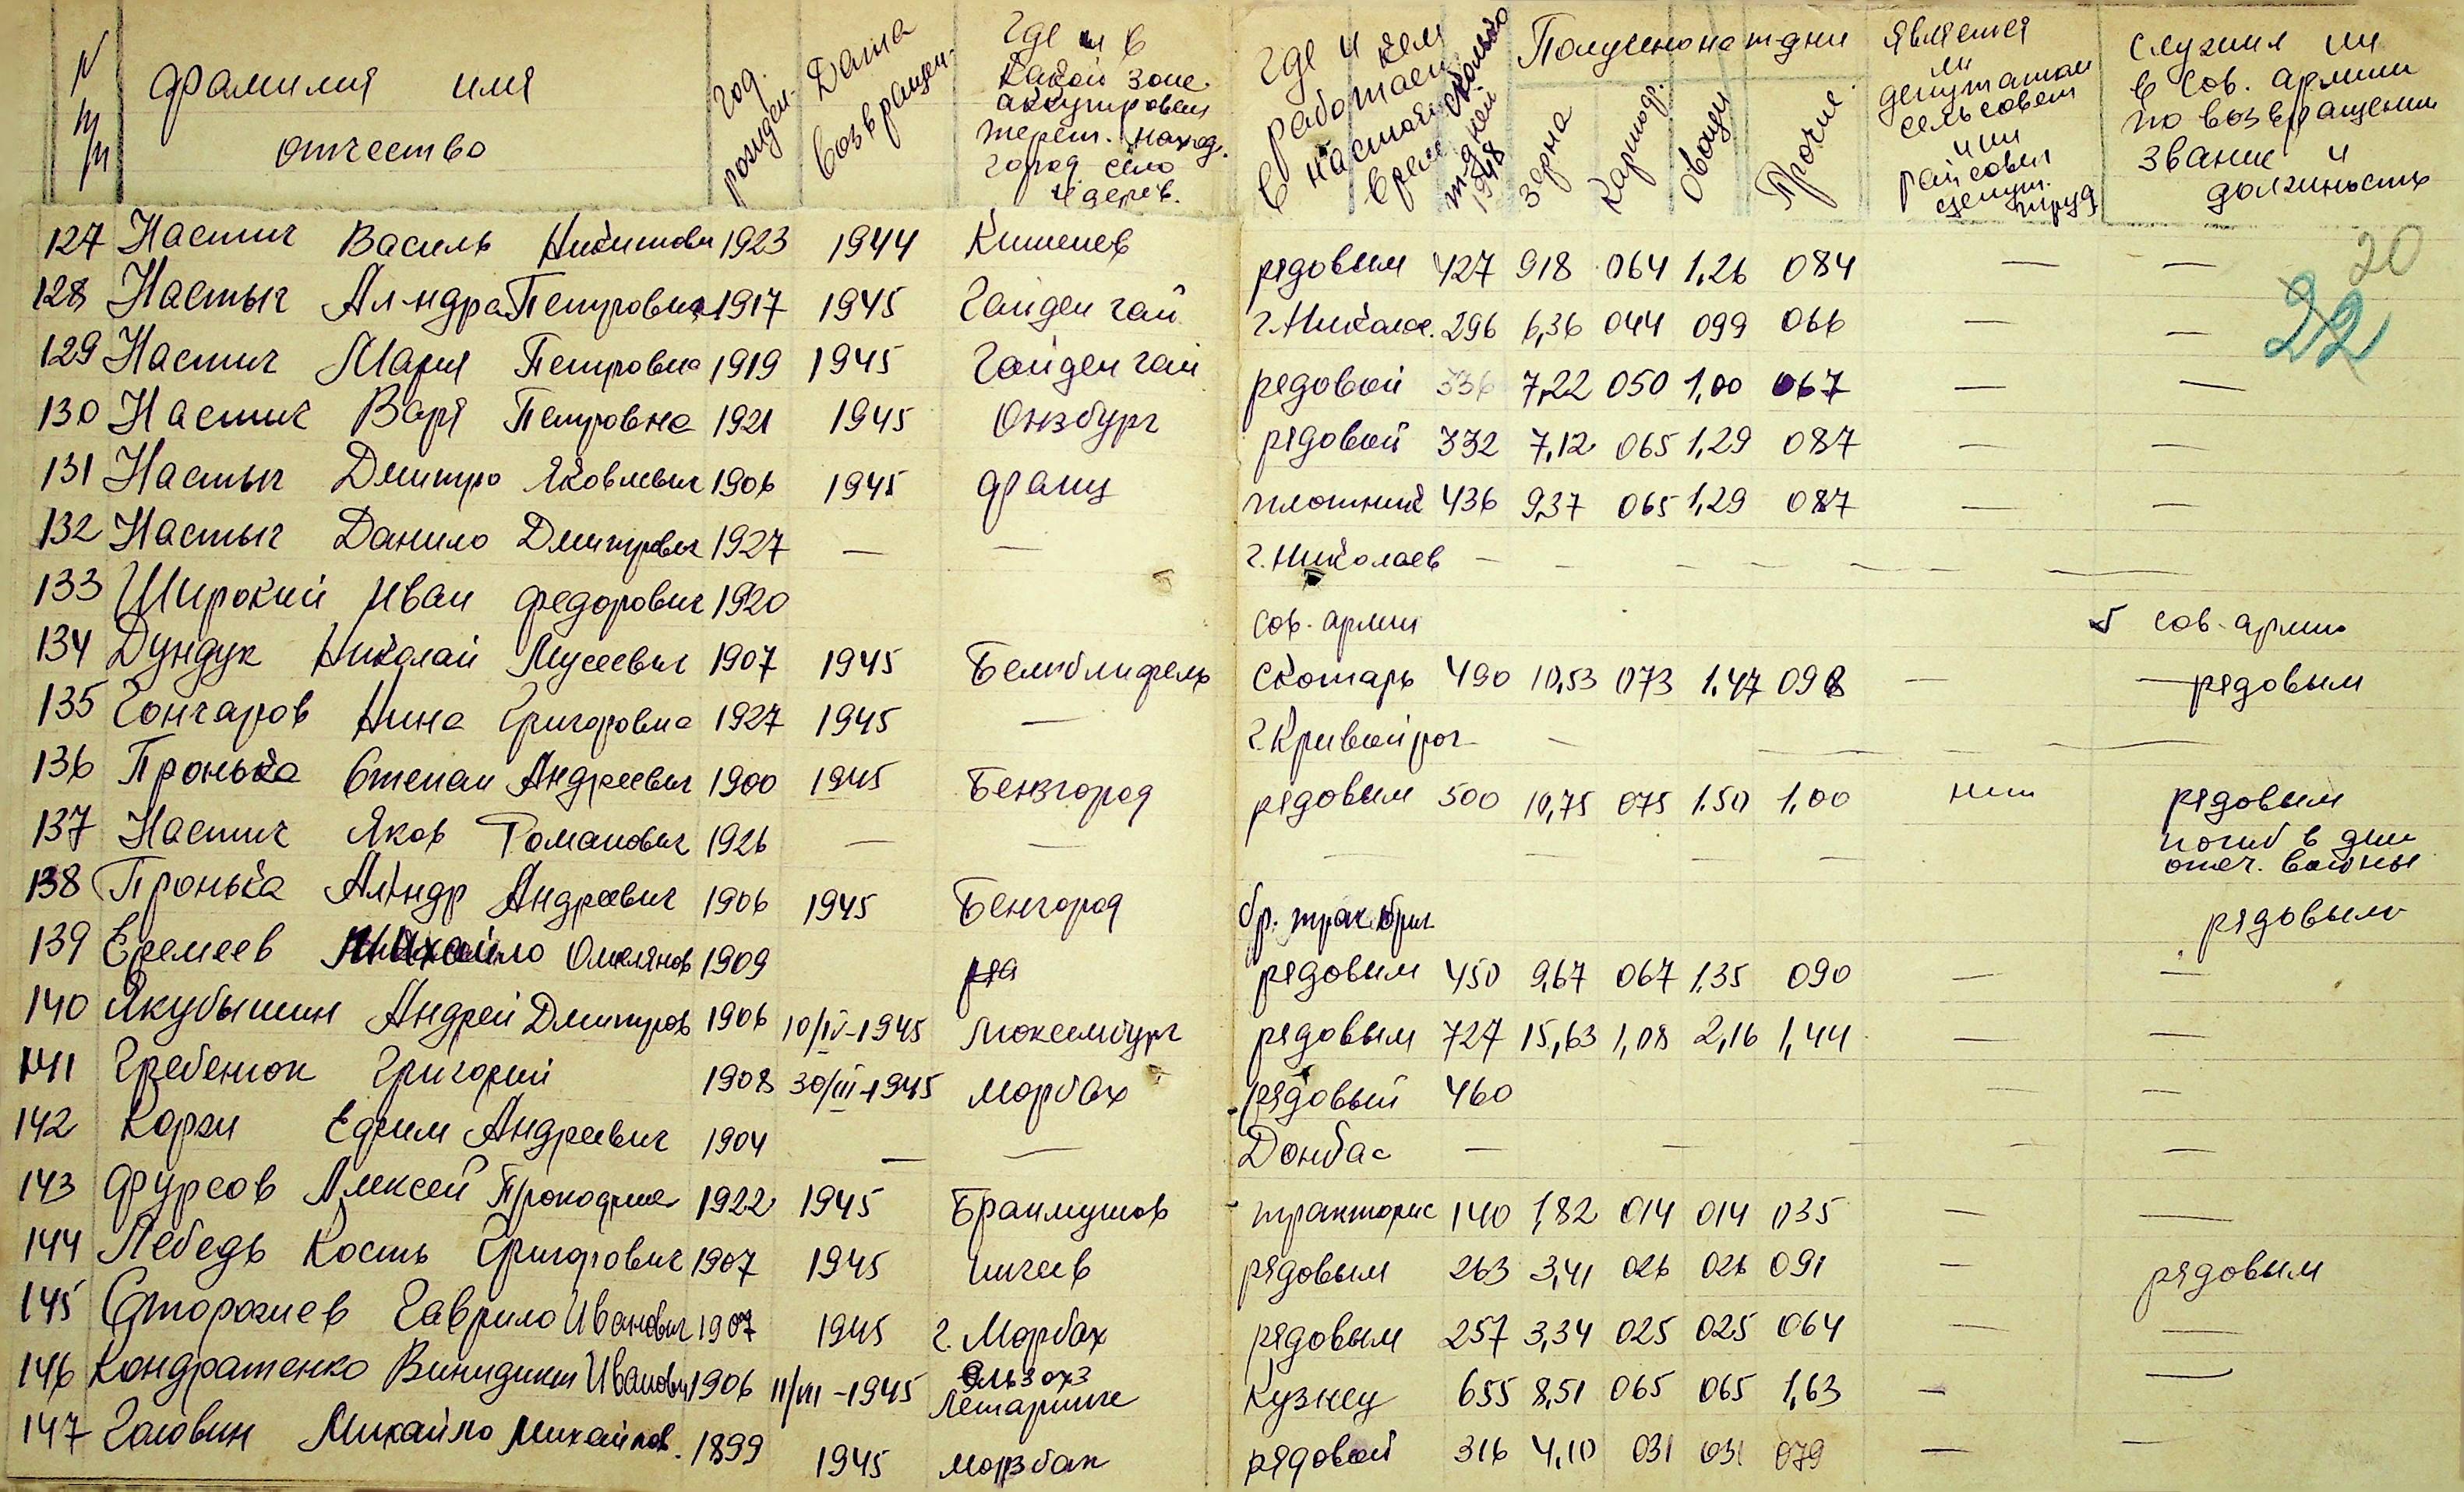 N п/п Фамилия имя отчество год рожден. Дата возвращен. Где и в какой зоне аккупирован терет. наход. город село и дерев. Где и кем работает в настоящ. врем Сколько т-дней 1948 Получено на т-дни зерна картоф. овощи Прочие является ли депутатом сельсовет или райсовет депут. труд служил ли в Сов. армии по возвращении звание и должность
20
22
127 Настич Василь Никитови 1923 1944 Кишенев рядовым 427 918 064 1,26 084 — —
128 Настыч Ал-ндра Петровна 1917 1945 Гайден гай г. Николае. 296 6,36 044 099 066 — —
129 Настич Мария Петровна 1919 1945 Гайден гай редовой 336 7,22 050 1,00 067 — —
130 Настич Варя Петровна 1921 1945 Онзбург рядовой 332 7,12 065 1,29 087 — —
131 Настыч Дмитро Яковлевич 1906 1945 франц плотник 436 9,37 065 1,29 087 — —
132 Настыч Данило Дмитрович 1927 — — г. Николаев — — — — — —
133 Широкий Иван Федорович 1920 сов. армии сов. армию
134 Дундук Николай Мусеевич 1907 1945 Белиблифель скотарь 490 10,53 073 1.47 098 — — рядовым
135 Гончаров Нина Григоровна 1927 1945 — г. Кривой рог — — — —
136 Пронька Степан Андреевич 1900 1945 Бензгород рядовым 500 10,75 075 1.50 1,00 нит рядовым
137 Настич Яков Романович 1926 — — — — — — погиб в дни отеч. войны
138 Пронька Ал-ндр Андреевич 1906 1945 Бенгород бр. трак. бриг рядовым
139 Еремеев Михайло Омелянов 1909 ряд рядовым 450 9,67 067 1.35 090 — —
140 Якубышин Андрей Дмитров 1906 10/IV-1945 Люксембург рядовым 727 15,63 1,08 2,16 1,44 — —
141 Гребенюк Григорий 1908 30/III-1945 Морбах рядовый 460 — —
142 Коржи Ефим Андреевич 1904 — — Донбас — — — — —
143 Фурсов Алексей Прокофие 1922 1945 Бранмушов тракторис 140 1,82 014 014 035 — —
144 Лебедь Кость Григорович 1907 1945 Шигеев рядовым 263 3,41 026 026 091 — рядовым
145 Сторожев Гаврило Иванович 1907 1945 г. Морбах рядовым 257 3,34 025 025 064 — —
146 Кондратенко Винидикт Иванови 1906 11/VIII-1945 Ользохз Летаринге Кузнец 655 8,51 065 065 1,63 — —
147 Головин Михайло Михайлов. 1899 1945 морзбах рядовой 316 4,10 031 031 079 — —